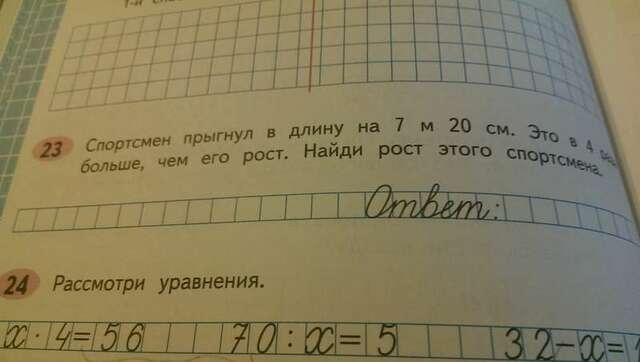 23 Спортсмен прыгнул в длину на 7 м 20 см. Это в 4 раза
больше, чем его рост. Найди рост этого спортсмена.
Ответ:
24 Рассмотри уравнения.
x · 4 = 56 70 : x = 5 32 − x =